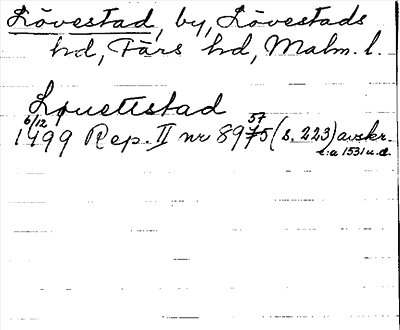 Lövestad, by, Lövestads
hd, Färs hd, Malm. l.
Louettstad
6/12 57
1499 Rep. II nr 8975 (s. 223) avskr.
c:a 1531 u.d.